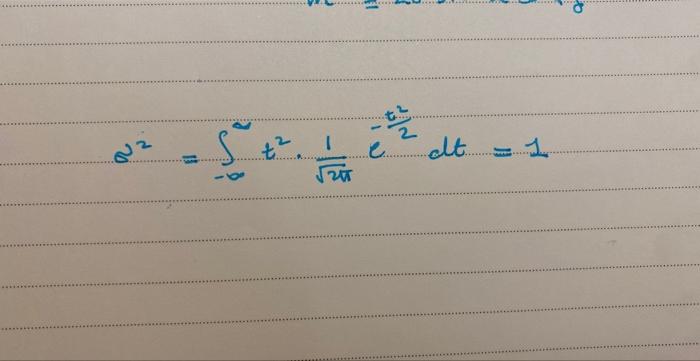 σ² = ∫_{-∞}^{∞} t² · 1/√2π e^{-t²/2} dt = 1